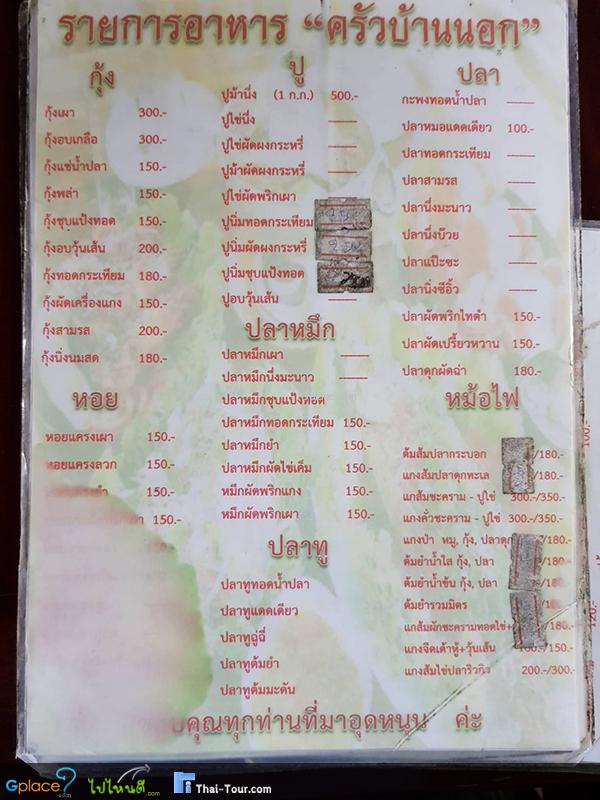 รายการอาหาร “ครัวบ้านนอก”
กุ้ง
กุ้งเผา 300.-
กุ้งอบเกลือ 300.-
กุ้งแช่น้ำปลา 150.-
กุ้งพล่า 150.-
กุ้งชุบแป้งทอด 150.-
กุ้งอบวุ้นเส้น 200.-
กุ้งทอดกระเทียม 180.-
กุ้งผัดเครื่องแกง 150.-
กุ้งสามรส 200.-
กุ้งนึ่งนมสด 180.-
หอย
หอยแครงเผา 150.-
หอยแครงลวก 150.-
150.-
150.-
ปู
ปูม้านึ่ง (1 ก.ก.) 500.-
ปูไข่นึ่ง
ปูไข่ผัดผงกระหรี่
ปูม้าผัดผงกระหรี่
ปูไข่ผัดพริกเผา
ปูนิ่มทอดกระเทียม
ปูนิ่มผัดผงกระหรี่
ปูนิ่มชุบแป้งทอด
ปูอบวุ้นเส้น
ปลาหมึก
ปลาหมึกเผา
ปลาหมึกนึ่งมะนาว
ปลาหมึกชุบแป้งทอด
ปลาหมึกทอดกระเทียม 150.-
ปลาหมึกยำ 150.-
ปลาหมึกผัดไข่เค็ม 150.-
หมึกผัดพริกแกง 150.-
หมึกผัดพริกเผา 150.-
ปลาทู
ปลาทูทอดน้ำปลา
ปลาทูแดดเดียว
ปลาทูฉู่ฉี่
ปลาทูต้มยำ
ปลาทูต้มมะดัน
ปลา
กะพงทอดน้ำปลา
ปลาหมอแดดเดียว 100.-
ปลาทอดกระเทียม
ปลาสามรส
ปลานึ่งมะนาว
ปลานึ่งบ๊วย
ปลาแป๊ะซะ
ปลานึ่งซีอิ้ว
ปลาผัดพริกไทดำ 150.-
ปลาผัดเปรี้ยวหวาน 150.-
ปลาดุกผัดฉ่า 180.-
หม้อไฟ
ต้มส้มปลากระบอก /180.-
แกงส้มปลาดุกทะเล /180.-
แกส้มชะคราม - ปูไข่ 300.-/350.-
แกงคั่วชะคราม - ปูไข่ 300.-/350.-
แกงป่า หมู, กุ้ง, ปลาดุก /180.-
ต้มยำน้ำใส กุ้ง, ปลา /180.-
ต้มยำน้ำข้น กุ้ง, ปลา /180.-
ต้มยำรวมมิตร
แกส้มผักชะครามทอดไข่+ /180.-
แกงจืดเต้าหู้+วุ้นเส้น /150.-
แกงส้มไข่ปลาริวกิว 200.-/300.-
บคุณทุกท่านที่มาอุดหนุน ค่ะ
100.-
120.-
Gplace ไปไหนดี.com Thai-Tour.com